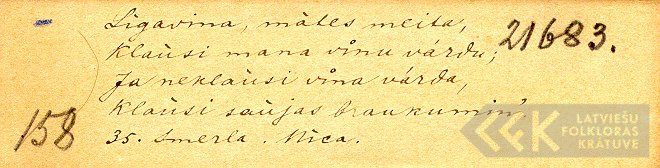 Līgaviņa, mātes meita,
Klaũsi mana viņu várdu;
Ja neklaũsi viņa várda,
Klaũsi saũjas braukumiņ'.
35. Smerla. Nīca.
21683.
158
LATVIEŠU
FOLKLORAS
KRĀTUVE